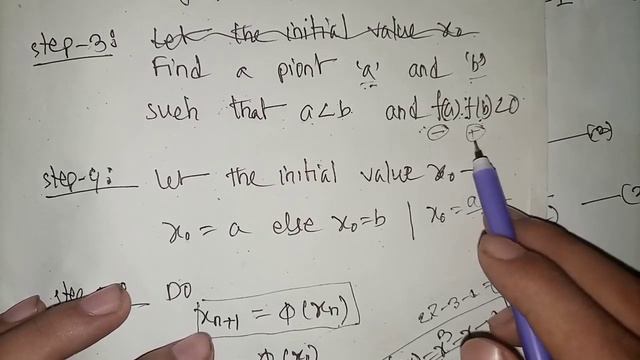 step-3: Let the initial value x₀
Find a piont 'a' and 'b'
such that a<b and f(a).f(b)<0
(-) (+)
step-4: Let the initial value x₀
x₀ = a else x₀=b | x₀ = a
DO
xₙ₊₁ = φ(xₙ)
φ(xₙ)
(2)